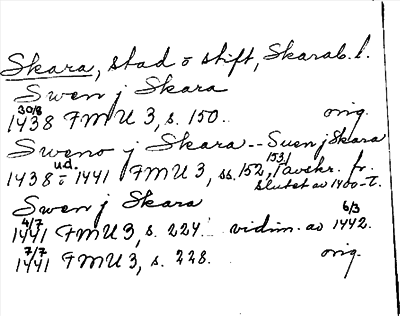 Skara, stad o stift, Skarab. l.
Swen j Skara
30/8
1438 FMU 3, s. 150. orig.
Sweno j Skara -- Suen j Skara
u.d. 153,
1438 o 1441 FMU 3, ss. 152, / avskr. fr.
slutet av 1400-t.
Swen j Skara
4/7 6/3
1441 FMU 3, s. 224. vidim. av 1442.
7/7
1441 FMU 3, s. 228. orig.